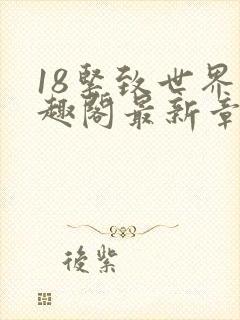 18堅致世界
趣閣最新章
後紫